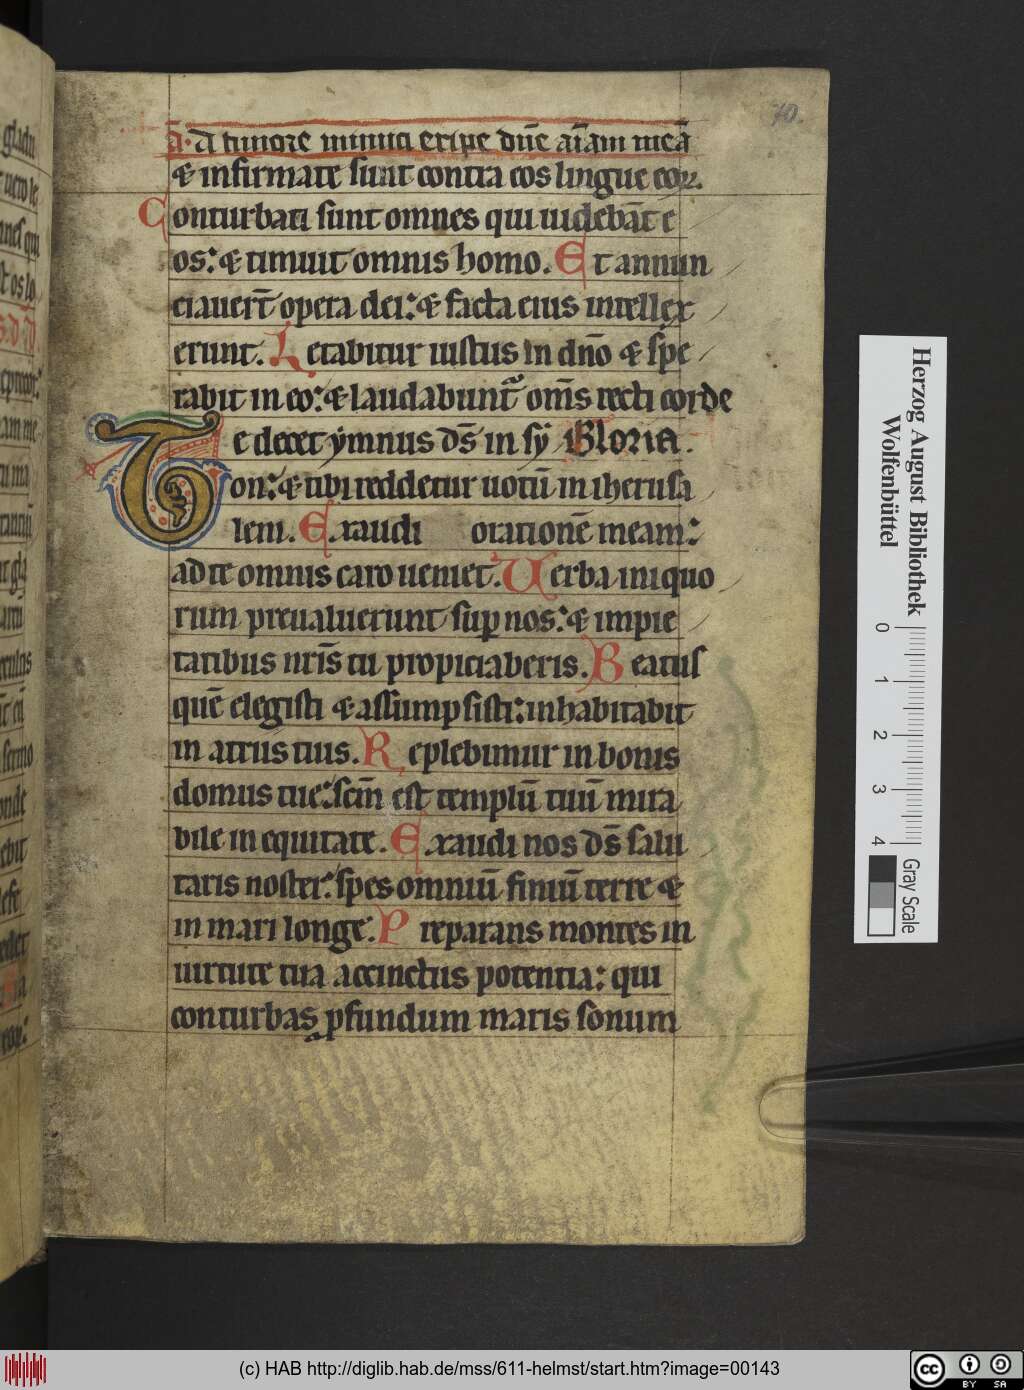 70.
A· A timore inimici eripe dn̄e aīam meā
& infirmate sunt contra eos lingue eoꝝ.
Conturbati sunt omnes qui uidebāt e
os: & timuit omnis homo. Et annun
ciauert̄ opera dei: & facta eius intellex
erunt. Letabitur iustus in dn̄o & spe
rabit in eo: & laudabunt᷑ om̄s recti corde
Te decet ẏmnus ds̄ in sẏ Gloria.
on: & tibi reddetur uotū in iherusa
lem. Exaudi orationē meam:
ad te omnis caro ueniet. Uerba iniquo
rum preualuerunt suꝑ nos: & impie
tatibus nr̄is tu propiciaberis. Beatus
quē elegisti & assumpsisti: inhabitabit
in atriis tuis. Replebimur in bonis
domus tue: scm̄ est templū tuū mira
bile in equitate. Exaudi nos ds̄ salu
taris noster: spes omniū finiū terre &
in mari longe. Preparans montes in
uirtute tua accinctus potentia: qui
conturbas ꝓfundum maris sonum
Herzog August Bibliothek
Wolfenbüttel
0 1 2 3 4
Gray Scale
(c) HAB http://diglib.hab.de/mss/611-helmst/start.htm?image=00143
cc BY SA